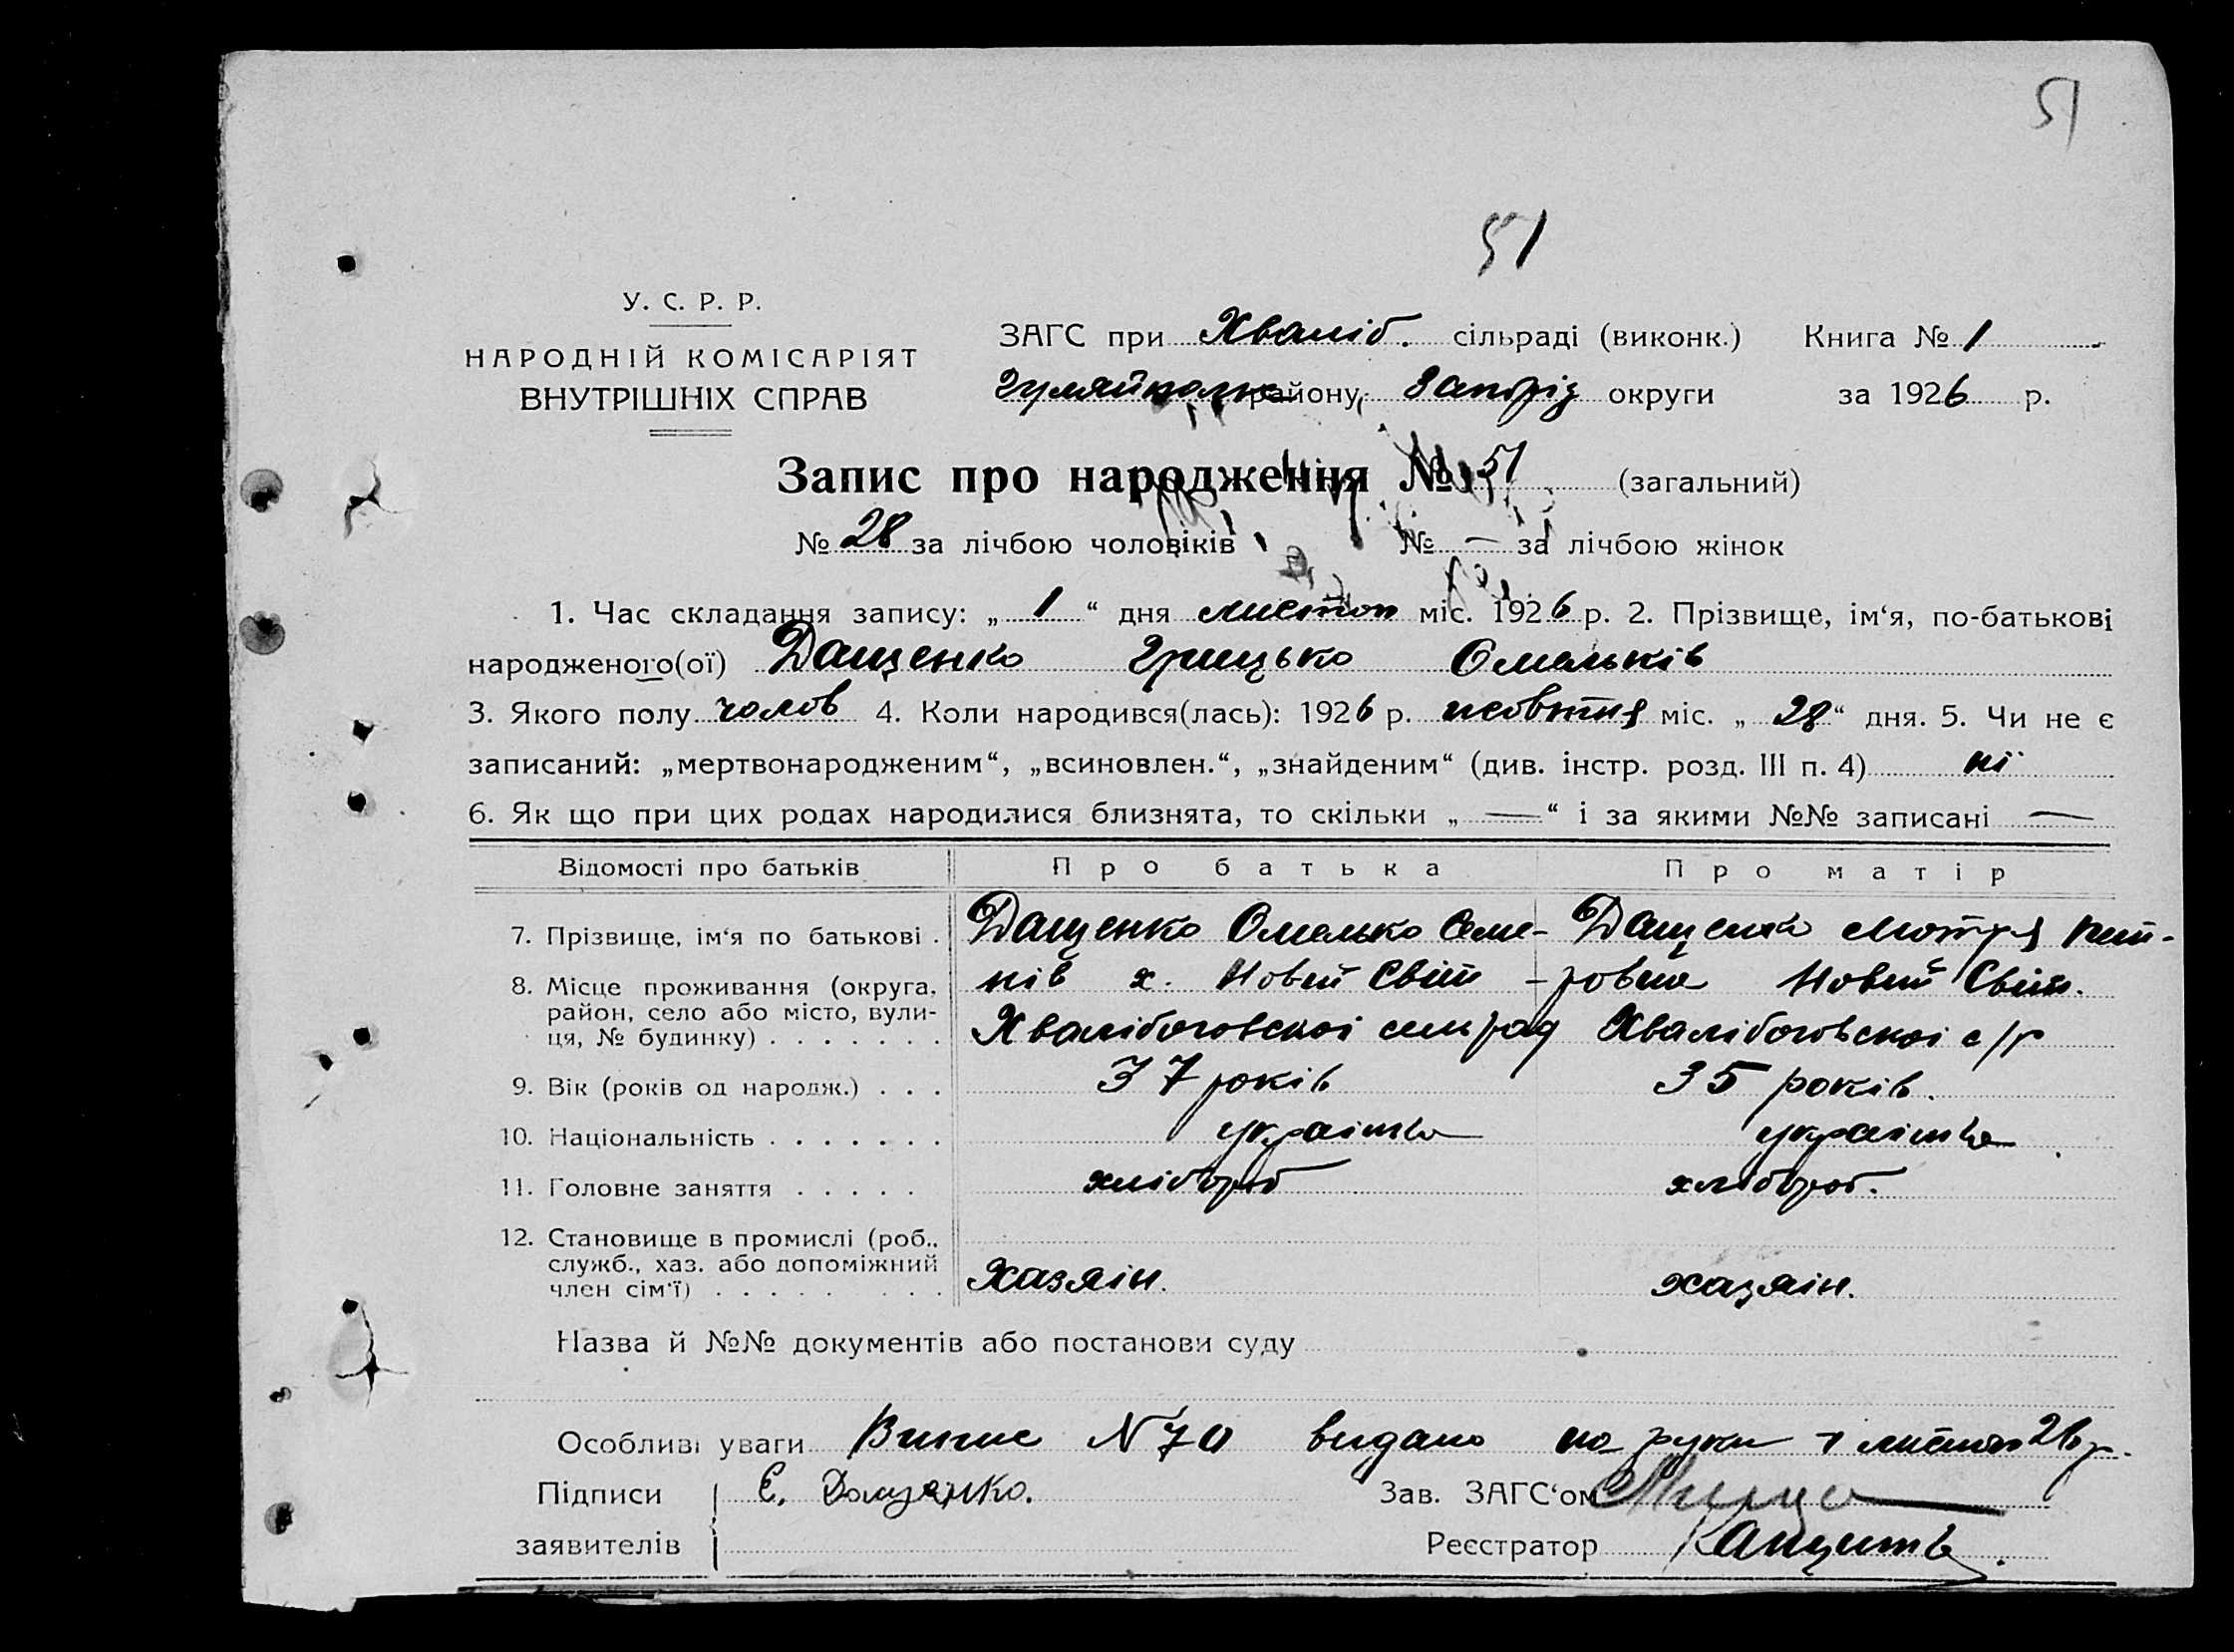 51
51
У. С. Р. Р.
НАРОДНІЙ КОМІСАРІЯТ
ВНУТРІШНІХ СПРАВ
ЗАГС при Хваліб. сільраді (виконк.) Книга № 1
Гуляйпольс району Запоріз округи за 1926 р.
Запис про народження № 51 (загальний)
№ 28 за лічбою чоловіків № — за лічбою жінок
1. Час складання запису: „ 1 “ дня листоп міс. 1926 р. 2. Прізвище, ім‘я, по-батькові
народженого(ої) Дащенко Грицько Омельків
3. Якого полу чолов 4. Коли народився(лась): 1926 р. жовтня міс. „ 28 “ дня. 5. Чи не є
записаний: „мертвонародженим“, „всиновлен.“, „знайденим“ (див. інстр. розд. III п. 4) ні
6. Як що при цих родах народилися близнята, то скільки „ — “ і за якими №№ записані —
Відомості про батьків Про батька Про матір
7. Прізвище, ім‘я по батькові . Дащенко Омелько Семе- Дащенко Мотря Пет-
8. Місце проживання (округа, нів х. Новий Світ - ровна Новий Світ.
район, село або місто, вули-
ця, № будинку) . . . . . . . Хвалібоговскоі сельрад Хвалібоговскоі с/р
9. Вік (років од народж.) . . . 37 років 35 років.
10. Національність . . . . . . . украінка
11. Головне заняття . . . . . хлібороб хлібороб.
12. Становище в промислі (роб.,
служб., хаз. або допоміжний
член сім‘ї) . . . . . . . . Хазяін. хазяін.
Назва й №№ документів або постанови суду
Особливі уваги Випис N 70 видано на руки 1 листоп 26 р.
Підписи Є. Дащенко. Зав. ЗАГС‘ом
заявителів Реєстратор